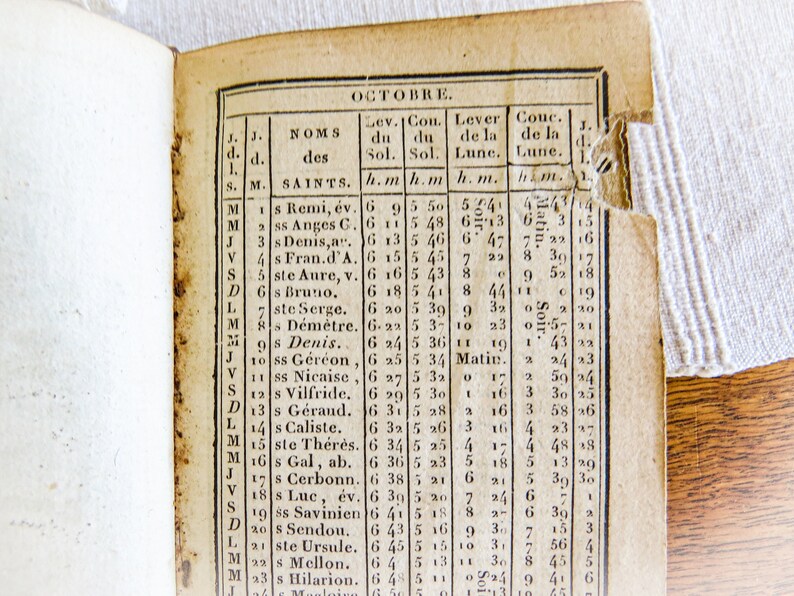 OCTOBRE.
J. d. l. s. J. d. M. NOMS des SAINTS. Lev. du Sol. Cou. du Sol. Lever de la Lune. Couc. de la Lune. J. d. l.
h. m h. m h. m. h. m.
M 1 s Remi, év. 6 9 5 50 5 41 4 43 14
M 2 ss Anges G. 6 11 5 48 6 13 6 3 15
J 3 s Denis, av. 6 13 5 46 6 47 7 22 16
V 4 s Fran. d'A. 6 15 5 45 7 22 8 39 17
S 5 ste Aure, v. 6 16 5 43 8 0 9 52 18
D 6 s Bruno. 6 18 5 41 8 44 11 0 19
L 7 ste Serge. 6 20 5 39 9 32 0 2 20
M 8 s Démètre. 6 22 5 37 10 23 0 57 21
M 9 s Denis. 6 24 5 36 11 19 1 43 22
J 10 ss Géréon, 6 25 5 34 Matin. 2 24 23
V 11 ss Nicaise, 6 27 5 32 0 17 2 59 24
S 12 s Vilfride. 6 29 5 30 1 16 3 30 25
D 13 s Géraud. 6 31 5 28 2 16 3 58 26
L 14 s Caliste. 6 32 5 26 3 16 4 23 27
M 15 ste Thérès. 6 34 5 25 4 17 4 48 28
M 16 s Gal, ab. 6 36 5 23 5 18 5 13 29
J 17 s Cerbonn. 6 38 5 21 6 21 5 39 30
V 18 s Luc, év. 6 39 5 20 7 24 6 7 1
S 19 ss Savinien 6 41 5 18 8 27 6 39 2
D 20 s Sendou. 6 43 5 16 9 30 7 15 3
L 21 ste Ursule. 6 45 5 15 10 31 7 56 4
M 22 s Mellon. 6 4 5 13 11 30 8 45 5
M 23 s Hilarion. 6 48 5 11 0 24 9 41 6
J 24 s Magloire
Soir.
Matin.
Soir.